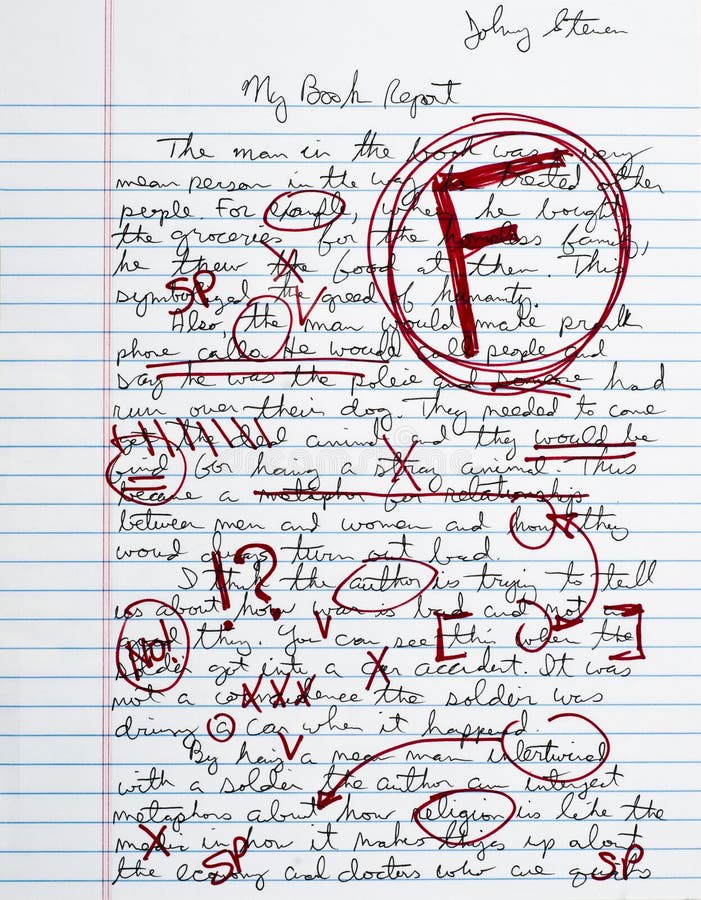 Johny Steven
My Book Report
The man in the book was a very
mean person in the way he treated other
people. For example, when he bought
the groceries for the homeless family,
he threw the food at them. This
SP
symbolized the greed of humanity.
Also, the man would make prank
phone calls. He would call people and
say he was the police and someone had
run over their dog. They needed to come
get the dead animal and they would be
find for having a stray animal. Thus
became a metaphor for relationship
between men and women and how they
would always turn out bad.
!?
I think the author is trying to tell
us about how war is bad and not a
good thing. You can see this when the
NO!
solder got into a car accident. It was
not a the solder was
driving a car when it happend.
By having a mean man intertwined
with a solder the author can interject
metaphors about how religion is like the
in how it makes things up about
SP SP
the economy and doctors who are
F